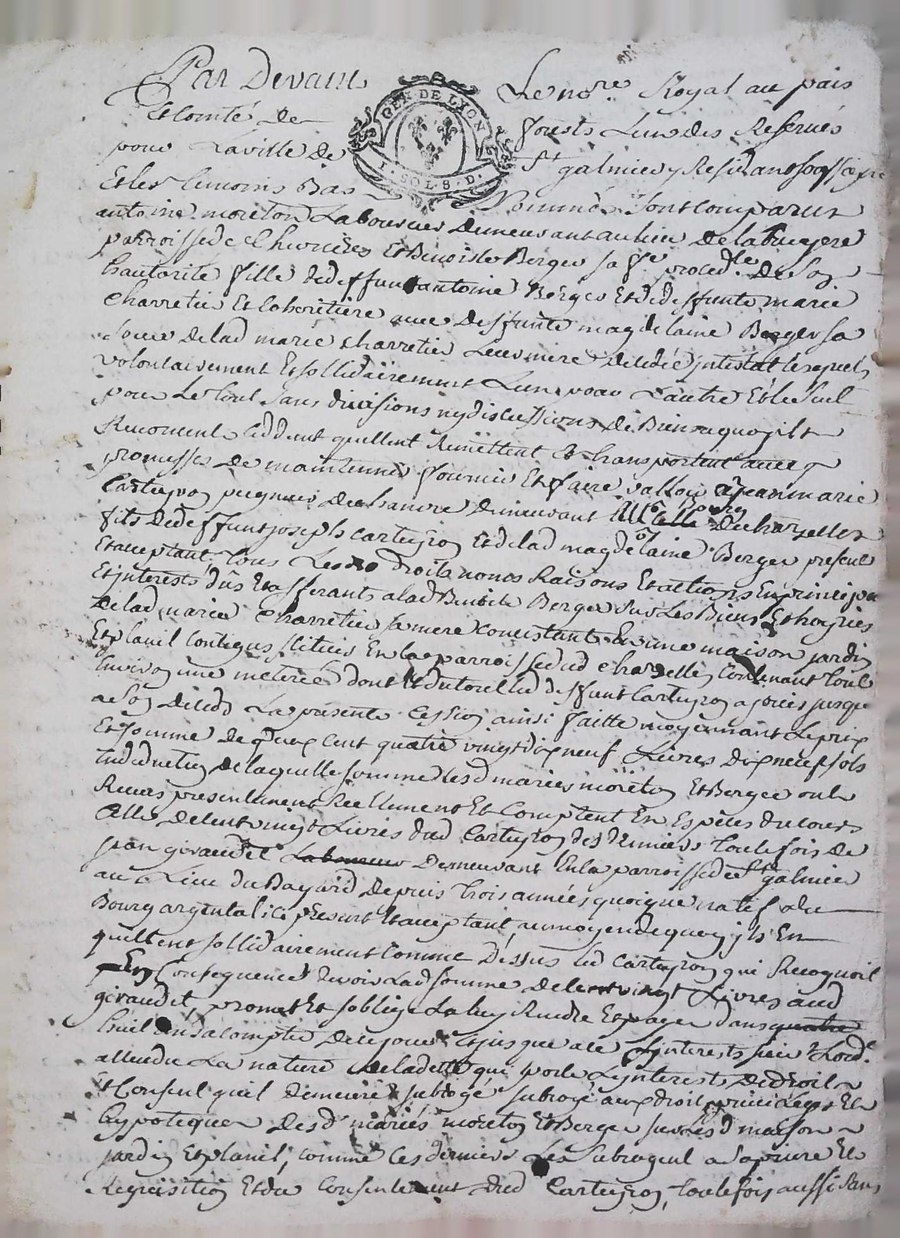 Par Devant Le nore Royal au païs
GEN. DE LYON
1. SOL 8. D.
Et Comté de forests Lun des Reserués
pour La ville de St galmier y Residant soussigné
Et les temoins Bas Nommés sont comparus
antoine moreton Laboureur Demeurant au lieu De la bruyere
parroisse de Et Benoiste Berger sa fe proced.te De Son
hautorité fille de deffunt antoine Berger Et de deffunte marie
charretier Et coheritiere avec deffunte magdelaine Berger sa
soeur de lad marie charretier Leur mere decedée intestat lesquels
volontairement Et sollidairement L'un pour L'autre Et le seul
pour Le tout sans divisions ny discussions de Biens a quoy ils
Renoncent cèddent quittent Remettent Et transportent avec
promesses De maintenir fournir Et faire valloir à Jean marie
Carteyron peigneur de chanvre Demeurant De chazelles
fils de deffunt joseph carteyron Et de lad magdelaine Berger present
Et acceptant, tous Les droits noms Raisons Et actions En principal
Et interests dus Et afferants a lad Benoiste Berger sur Les Biens Et hoyries
De lad marie charretier sa mere Concistants En une maison jardin
Et planil contigus scitués En la parroisse dud chazelles Contenant tout
Environ une meterée dont Et du tout led deffunt Carteyron a jouies jusque
a son Décéds La présente cession ainsi faitte moyennant Le prix
Et somme De cent quatre vingt dix neuf Livres dix neuf sols
de laquelle somme les d mariés moreton Et Berger ont
Receus presentement Reellement Et Comptent En Espèces du cours
Celle de cent vingt Livres dud Carteyron des deniers toutefois de
jean giraudet Laboureur Demeurant En la parroisse de St galmier
au Lieu du Bayard Depuis trois années quoique natif du
Bourg argental ici present Et acceptant au moyen de quoy ils En
quittent sollidairement Comme Dessus led Carteyron qui Recognoit
En Consequence devoir Lad somme de cent vingt Livres aud
giraudet, promet Et soblige La luy Rendre Et payer dans quatre
huit ans a compter De ce jour Et jusque a ce L'interests
attendu La nature de la dette qui porte L'interests De droit
Et Consent quil demeure subrogé aux droit privileges Et
hypoteques Des d mariés moreton Et Berger sur Les d maison
jardin Et planil, comme ces derniers Les subrogent a sa priere Et
Requisition Et du Consentement dud Carteyron, toutefois aussi sans